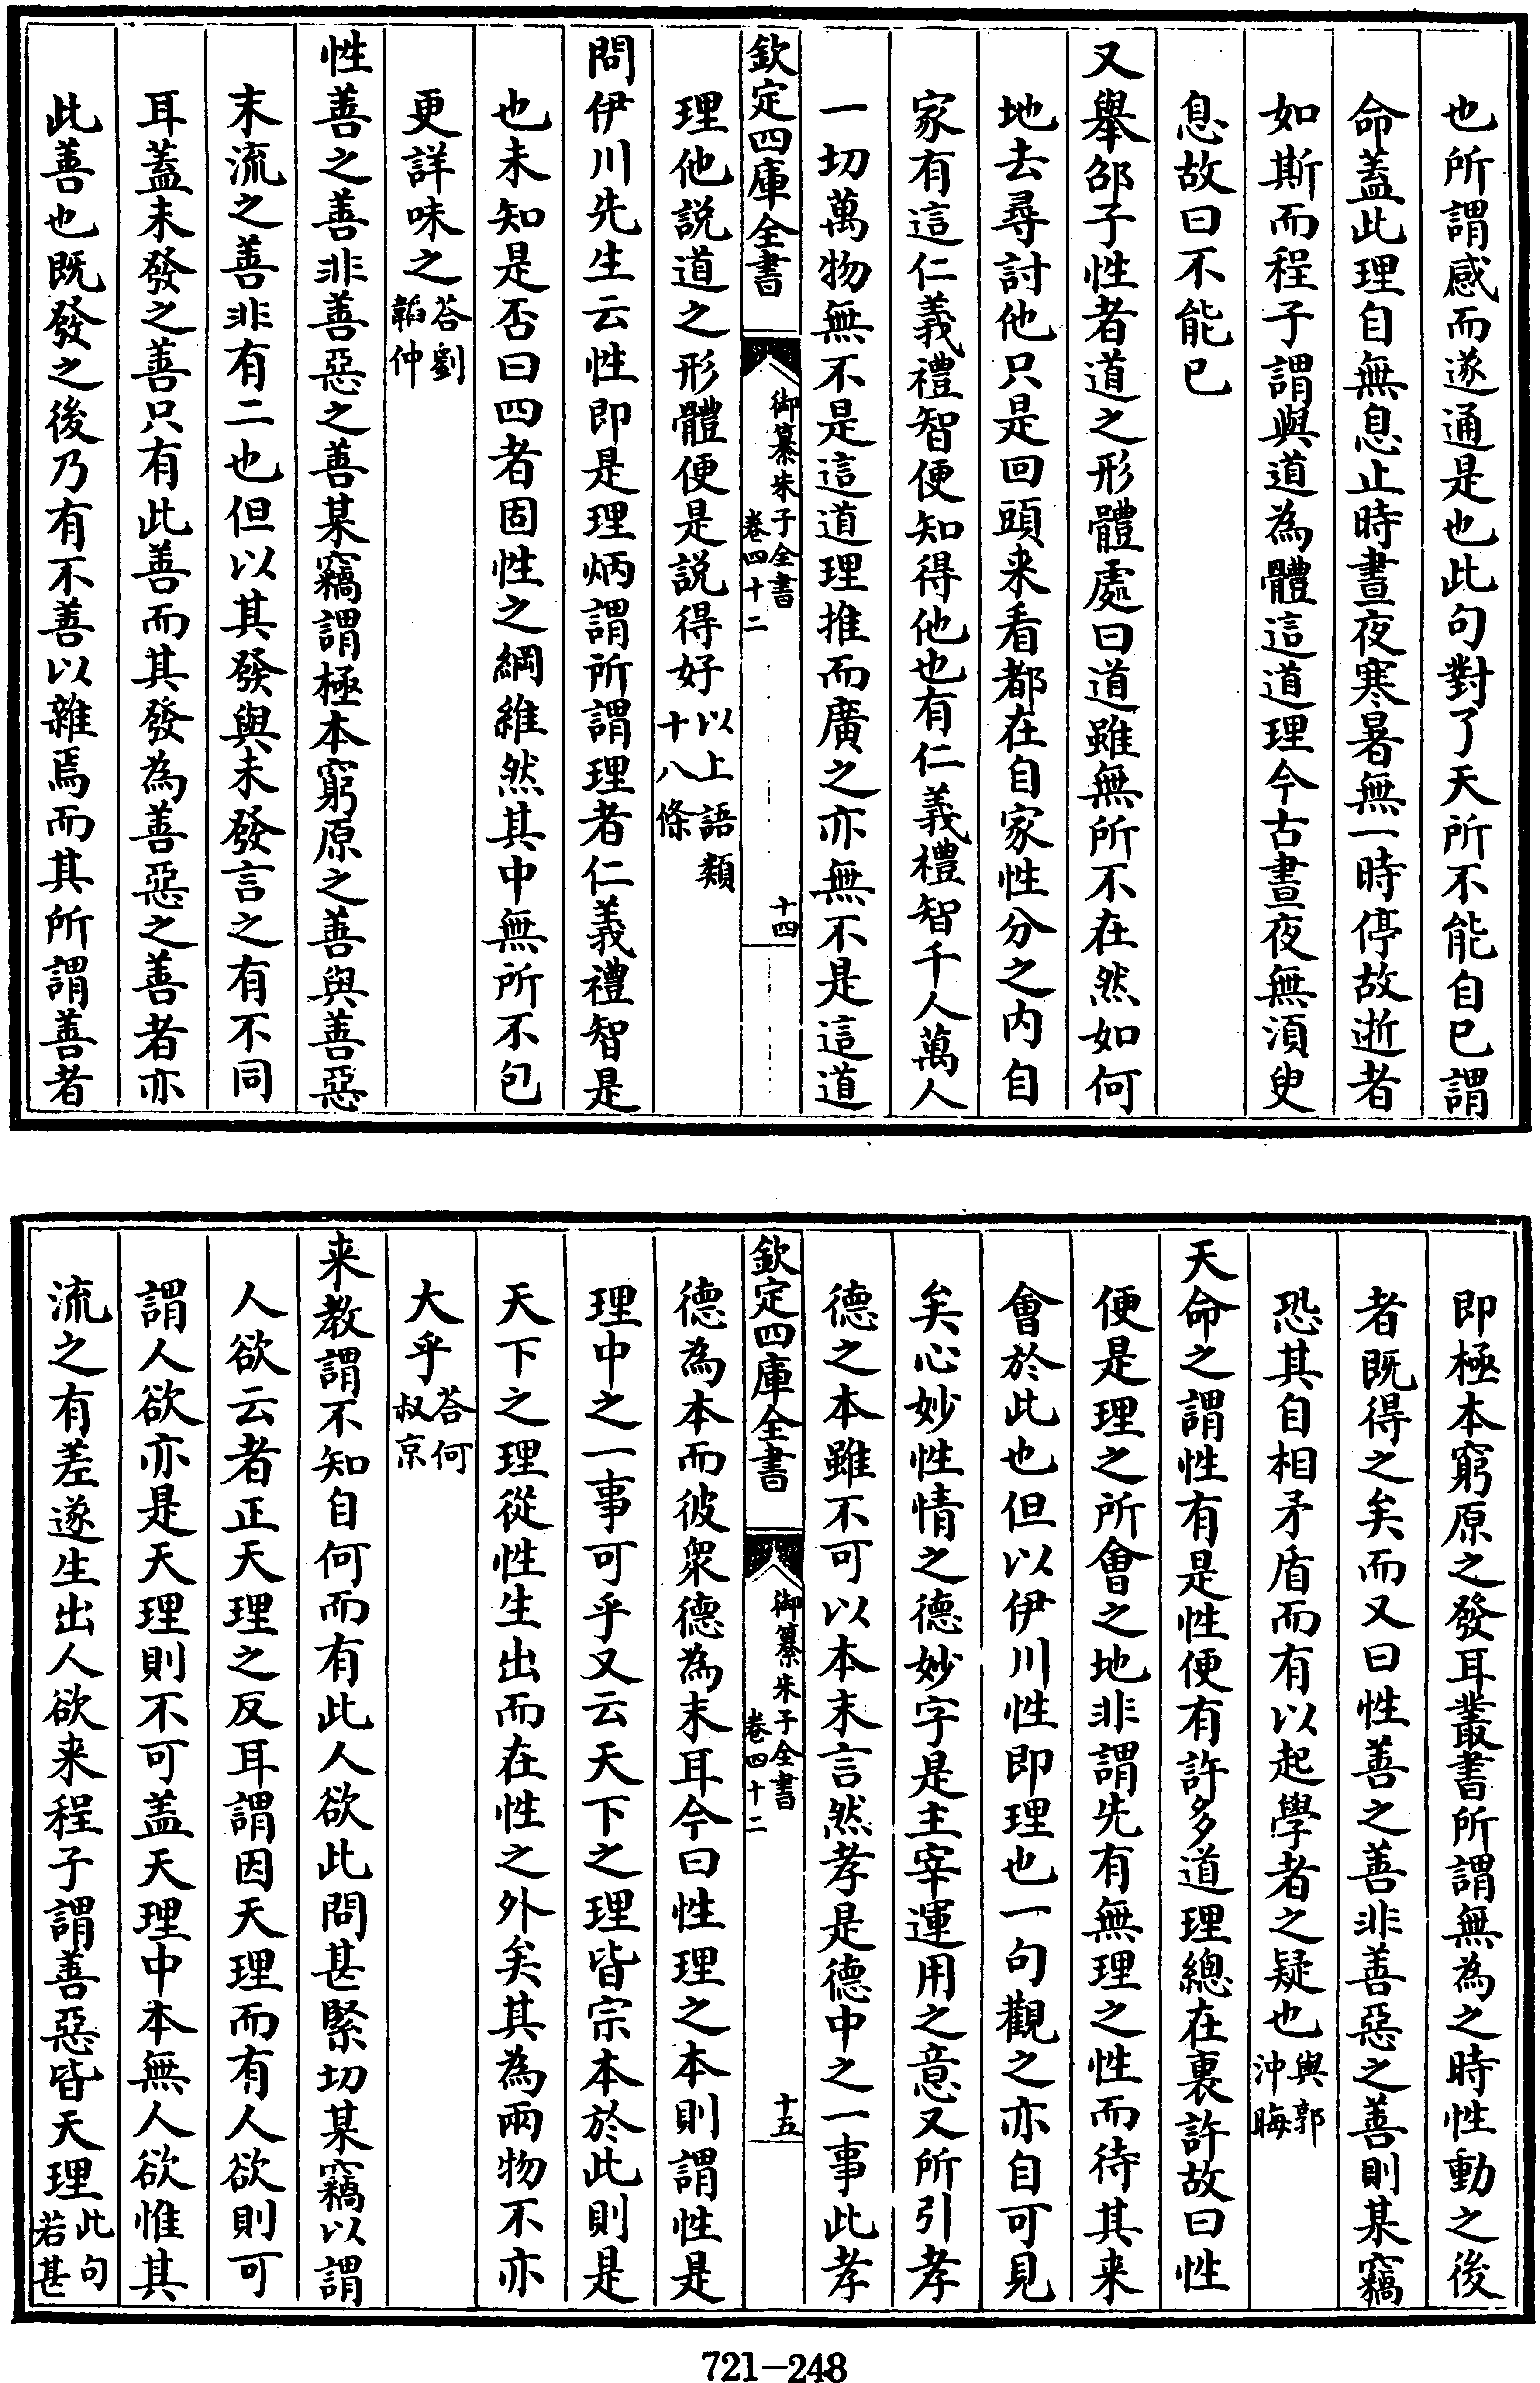 也所謂感而遂通是也此句對了天所不能自已謂
命蓋此理自無息止時晝夜寒暑無一時停故逝者
如斯而程子謂與道為體這道理今古晝夜無須臾
息故曰不能已
又舉邵子性者道之形體處曰道雖無所不在然如何
地去尋討他只是回頭來看都在自家性分之内自
家有這仁義禮智便知得他也有仁義禮智千人萬人
一切萬物無不是這道理推而廣之亦無不是這道
欽定四庫全書
御纂朱子全書
卷四十二
十四
理他説道之形體便是説得好以上語類
十八條
問伊川先生云性即是理炳謂所謂理者仁義禮智是
也未知是否曰四者固性之綱維然其中無所不包
更詳味之答劉
韜仲
性善之善非善惡之善某竊謂極本窮原之善與善惡
末流之善非有二也但以其發與未發言之有不同
耳蓋未發之善只有此善而其發為善惡之善者亦
此善也既發之後乃有不善以雜焉而其所謂善者
即極本窮原之發耳叢書所謂無為之時性動之後
者既得之矣而又曰性善之善非善惡之善則某竊
恐其自相矛盾而有以起學者之疑也與郭
沖晦
天命之謂性有是性便有許多道理總在裏許故曰性
便是理之所會之地非謂先有無理之性而待其來
會於此也但以伊川性即理也一句觀之亦自可見
矣心妙性情之德妙字是主宰運用之意又所引孝
德之本雖不可以本末言然孝是德中之一事此孝
欽定四庫全書
御纂朱子全書
卷四十二
十五
德為本而彼衆德為末耳今曰性理之本則謂性是
理中之一事可乎又云天下之理皆宗本於此則是
天下之理從性生出而在性之外矣其為兩物不亦
大乎答何
叔京
来教謂不知自何而有此人欲此問甚緊切某竊以謂
人欲云者正天理之反耳謂因天理而有人欲則可
謂人欲亦是天理則不可盖天理中本無人欲惟其
流之有差遂生出人欲来程子謂善惡皆天理此句
若甚
721-248